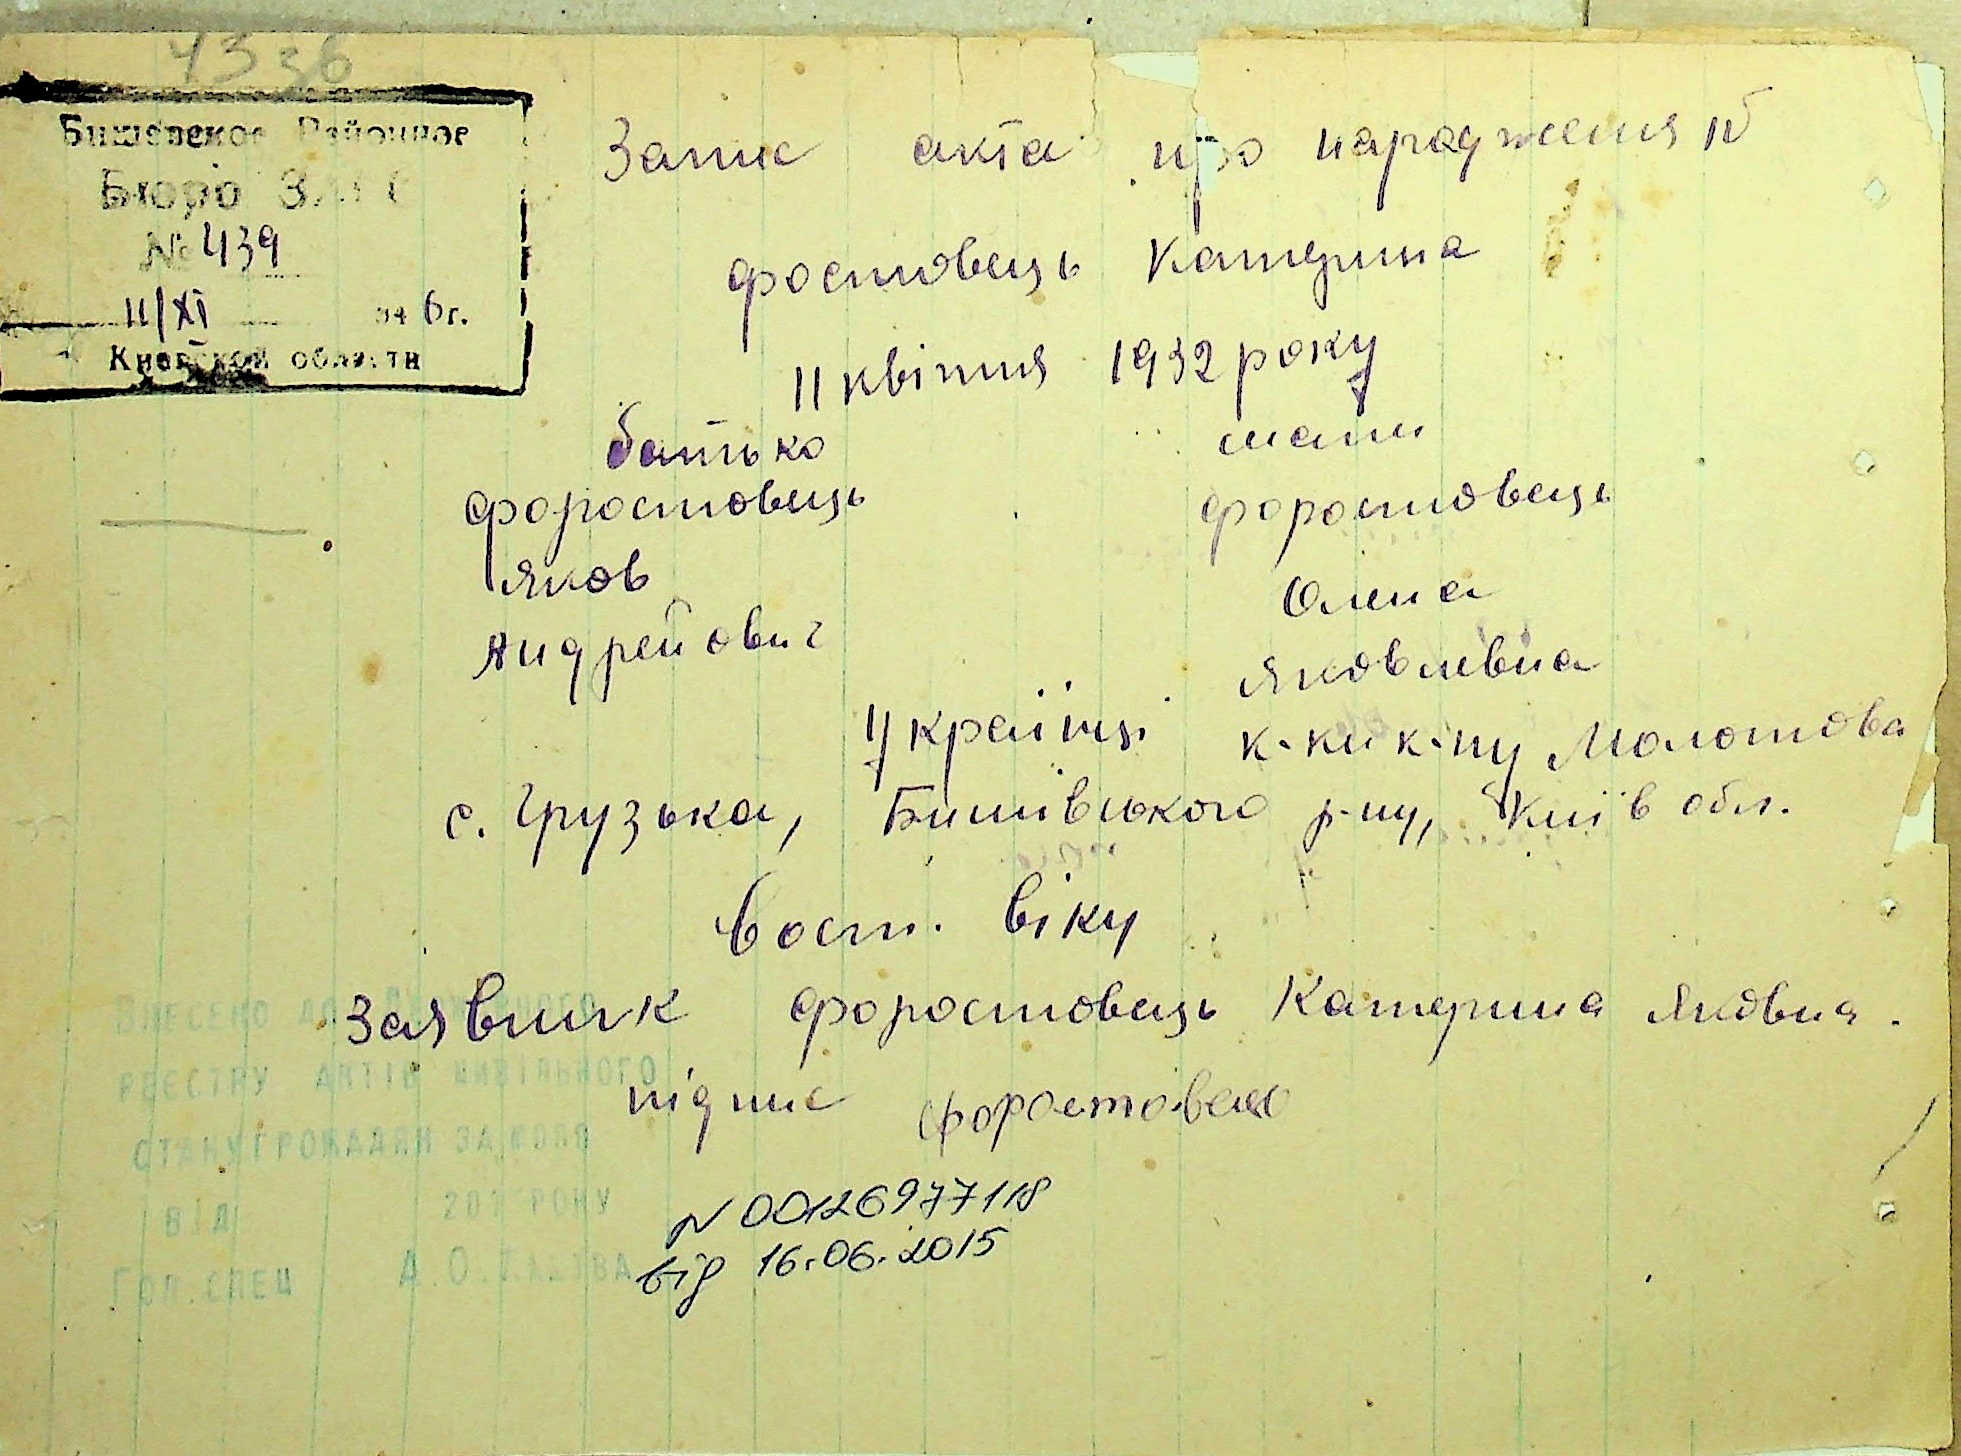 4336
Бишевское Районное
Бюро ЗАГС
№ 439
11/XI 194 6 г.
Киевской области
Запис акта про народження №
Фостовець Катерина
11 квітня 1932 року
батько мати
Форостовець Форостовець
Яков Олена
Андрейович Яковлевна
Українці к-ки к-пу Молотова
с. Грузька, Бишівського р-ну, Київ обл.
Вост. віку
Заявник Форостовець Катерина Яковна.
підпис Форостовець
ВНЕСЕНО ДО ДЕРЖАВНОГО
РЕЄСТРУ АКТІВ ЦИВІЛЬНОГО
СТАНУ ГРОМАДЯН ЗА
ВІД 201 РОКУ
ГОЛ. СПЕЦ А.О.
N 00126977118
від 16.06.2015